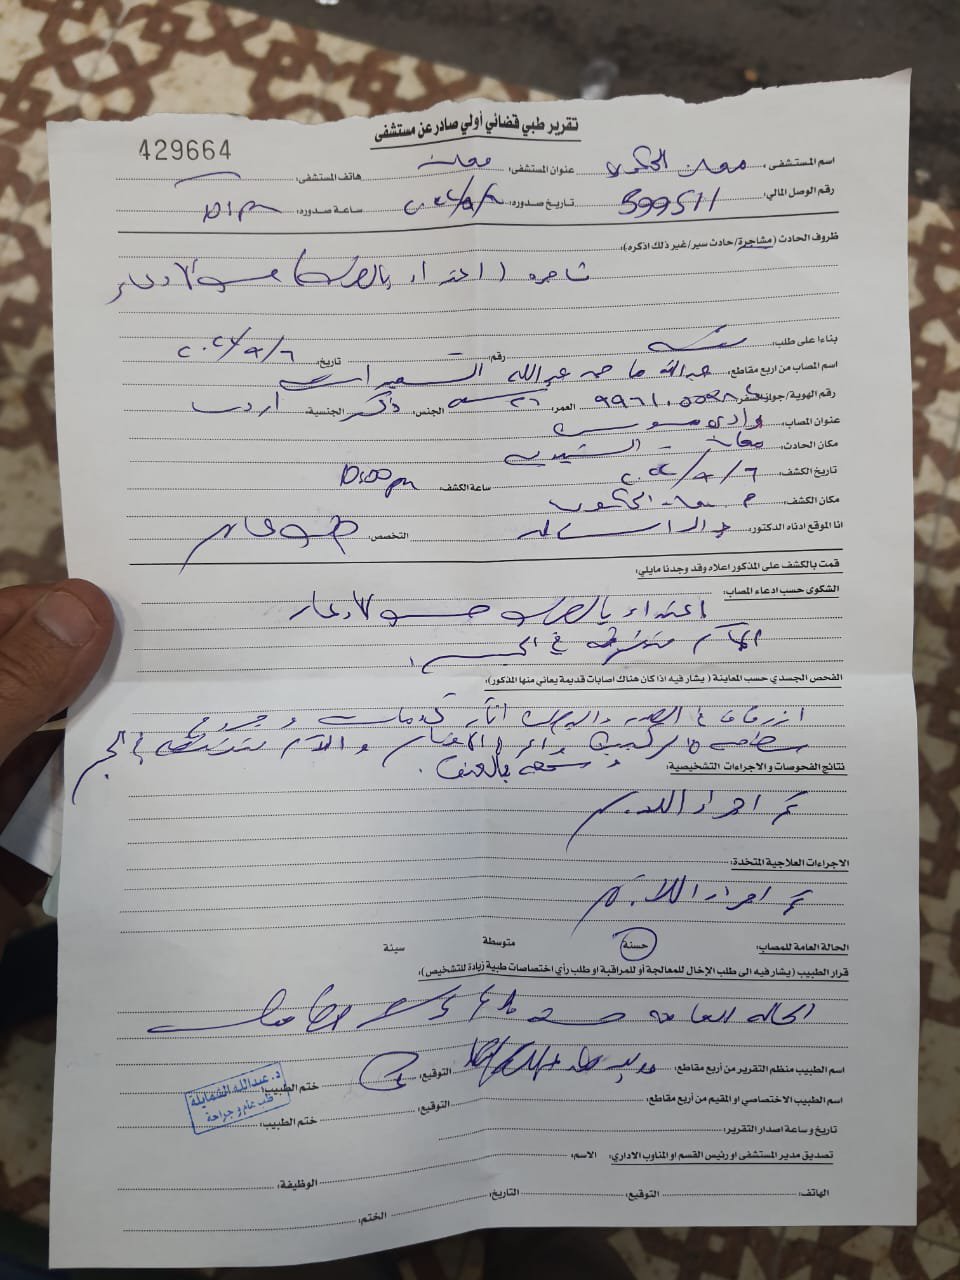 تقرير طبي قضائي أولي صادر عن مستشفى
429664
اسم المستشفى: معان الحكومي عنوان المستشفى: معان هاتف المستشفى:
رقم الوصل المالي: 599511 تاريخ صدوره: ساعة صدوره:
ظروف الحادث (مشاجرة/حادث سير/غير ذلك اذكره):
مشاجرة (اعتداء بالضرب) حسب الادعاء
بناءا على طلب: رقم: تاريخ: ٢٠٢٤/٩/٦
اسم المصاب من اربع مقاطع: عبدالله عبدالله
رقم الهوية/جواز السفر العمر: ٢٦ سنة الجنس: ذكر الجنسية: اردني
عنوان المصاب: وادي موسى
مكان الحادث: معان
تاريخ الكشف: ٢٠٢٤/٩/٦ ساعة الكشف: 10:00pm
مكان الكشف: م. معان الحكومي
انا الموقع ادناه الدكتور: التخصص: طب عام
قمت بالكشف على المذكور اعلاه وقد وجدنا مايلي:
الشكوى حسب ادعاء المصاب:
اعتداء بالضرب حسب الادعاء
آلام متفرقة في الجسم
الفحص الجسدي حسب المعاينة (يشار فيه اذا كان هناك اصابات قديمة يعاني منها المذكور):
ازرقاق في الصدر آثار كدمات وجروح
سطحية والآم متفرقة في الجسم
نتائج الفحوصات والاجراءات التشخيصية:
تم اجراء اللازم
الاجراءات العلاجية المتخذة:
تم اجراء اللازم
الحالة العامة للمصاب: حسنة متوسطة سيئة
قرار الطبيب (يشار فيه الى طلب الإخال للمعالجة أو للمراقبة او طلب رأي اختصاصات طبية زيادة للتشخيص):
الحالة العامة حسنة
اسم الطبيب منظم التقرير من أربع مقاطع: التوقيع: ختم الطبيب:
د. عبدالله الشمايلة
طب عام وجراحة
اسم الطبيب الاختصاصي او المقيم من أربع مقاطع: التوقيع: ختم الطبيب:
تاريخ وساعة اصدار التقرير:
تصديق مدير المستشفى او رئيس القسم او المناوب الاداري: الاسم: الوظيفة:
الهاتف: التوقيع: التاريخ: الختم: